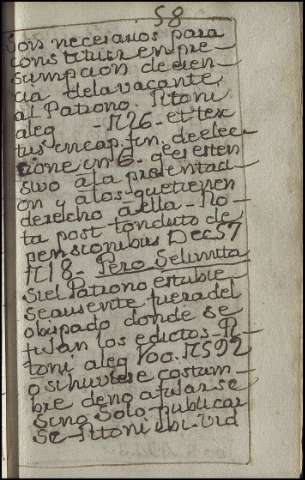 58
son necesarios para
constituir en pre
sumpcion de cien
cia de la vacante
al Patrono. Pitoni
aleg - N26 - et tex
tus in cap. fin. de elec
tione in 6 - q es esten
sivo a la presentaci
on y a los que tienen
derecho a ella - No
ta post tonduto de
pensionibus Dec 57
N18 - Pero se limita
si el Patrono estubie
se ausente fuera del
obispado donde se
fijan los edictos - Pi
toni aleg 100. N592
o si huviese costum
bre de no afijarse
sino solo publicar
se - Pitoni ibi - vid